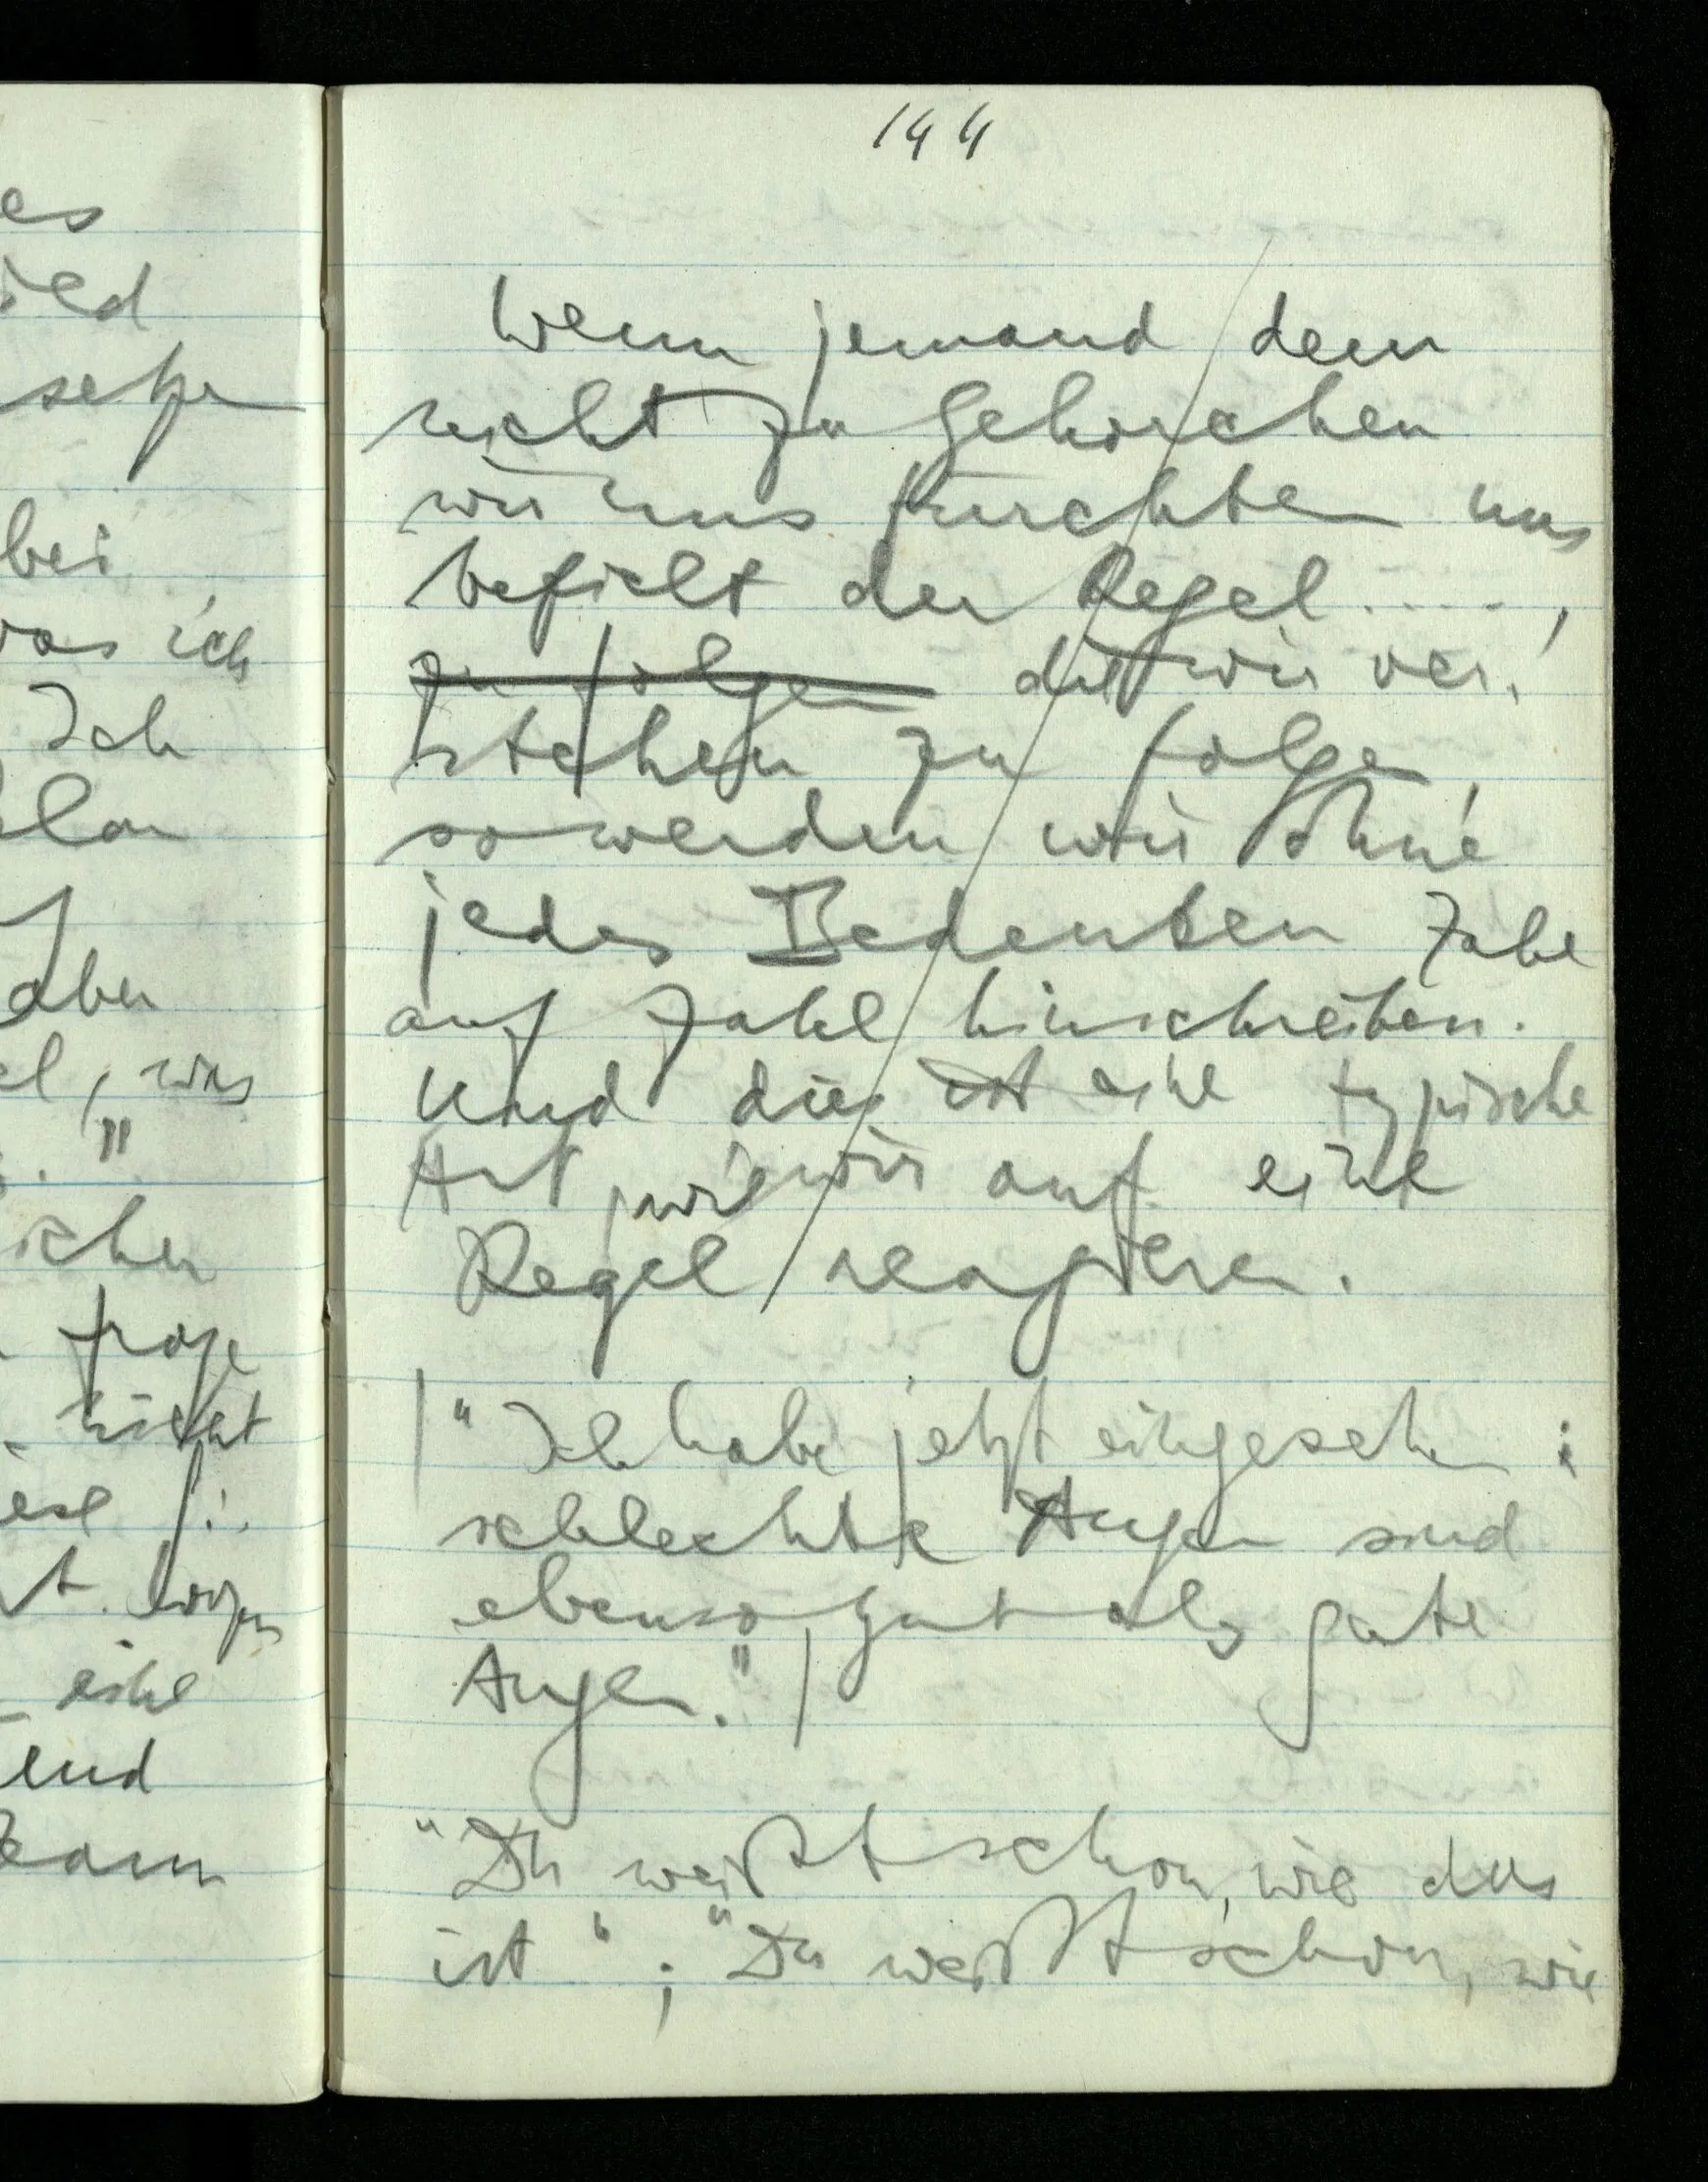 es
ild
setze
bei
was ich
Ich
klar
aber
el, was
."
ichen
frage
nicht
ese
t. wozu
eine
end
kann
144
Wenn jemand dem
nicht zu gehorchen
wir uns fürchten uns
befielt der Regel .....,
zu folgen die wir ver-
stehen zu folgen,
so werden wir ohne
jedes Bedenken Zahl
auf Zahl hinschreiben.
Und dies ist eine typische
Art, wie wir auf eine
Regel reagieren.
|"Ich habe jetzt eingesehen:
schlechte Augen sind
ebenso gut als gute
Augen."|
"Du weißt schon, wie das
ist"; "Du weißt schon, wie